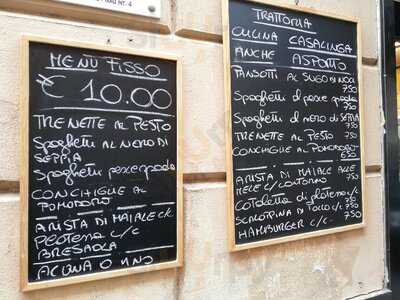 MENU FISSO
€ 10.00
TRENETTE AL PESTO
Spaghetti AL NERO DI
SEPPIA
Spaghetti pesce spada
CONCHIGLIE AL
POMODORO
ARISTA DI MAIALE c/c
BRESAOLA
ACQUA O VINO
TRATTORIA
CUCINA CASALINGA
ANCHE ASPORTO
PANSOTTI AL SUGO DI NOCI
750
Spaghetti al pesce spada
750
Spaghetti al nero di SEPPIA
750
TRENETTE AL PESTO 750
CONCHIGLIE AL POMODORO
650
ARISTA DI MAIALE ALLE
MELE c/CONTORNO 750
Cotoletta di platessa c/c
750
SCALOPPINA DI POLLO c/c 750
HAMBURGER c/c 750